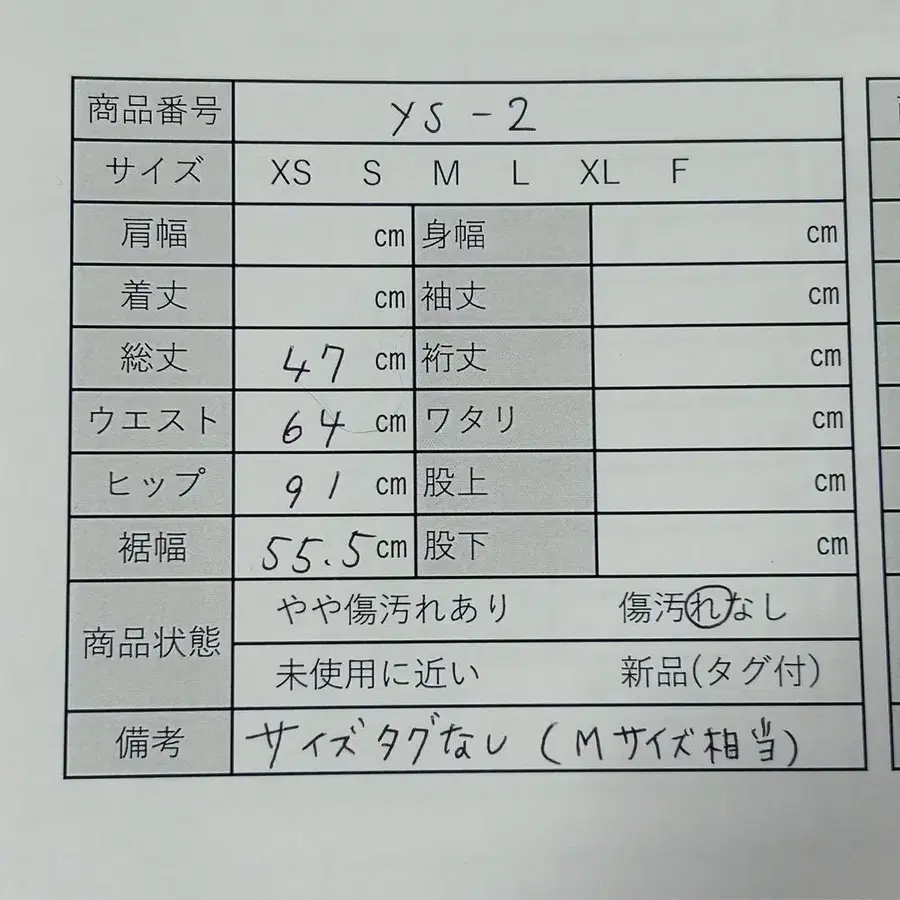 商品番号 YS-2
サイズ XS S M L XL F
肩幅 cm 身幅 cm
着丈 cm 袖丈 cm
総丈 47 cm 裄丈 cm
ウエスト 64 cm ワタリ cm
ヒップ 91 cm 股上 cm
裾幅 55.5 cm 股下 cm
商品状態
やや傷汚れあり 傷汚れなし
未使用に近い 新品(タグ付)
備考 サイズタグなし (Mサイズ相当)